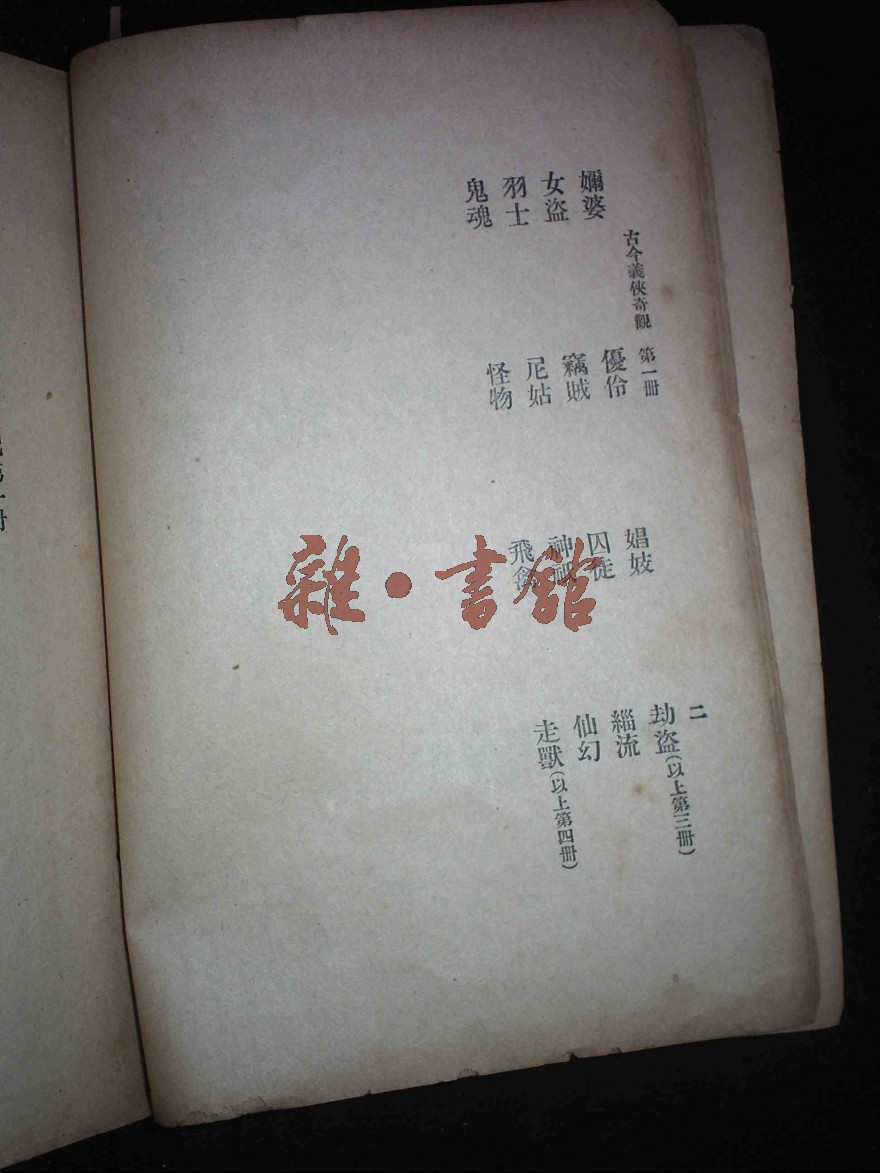 古今義俠奇觀　第一冊　二
嬭婆　優伶　娼妓　劫盜(以上第三冊)
女盜　竊賊　囚徒　緇流
羽士　尼姑　神祇　仙幻
鬼魂　怪物　飛禽　走獸(以上第四冊)
雜·書館